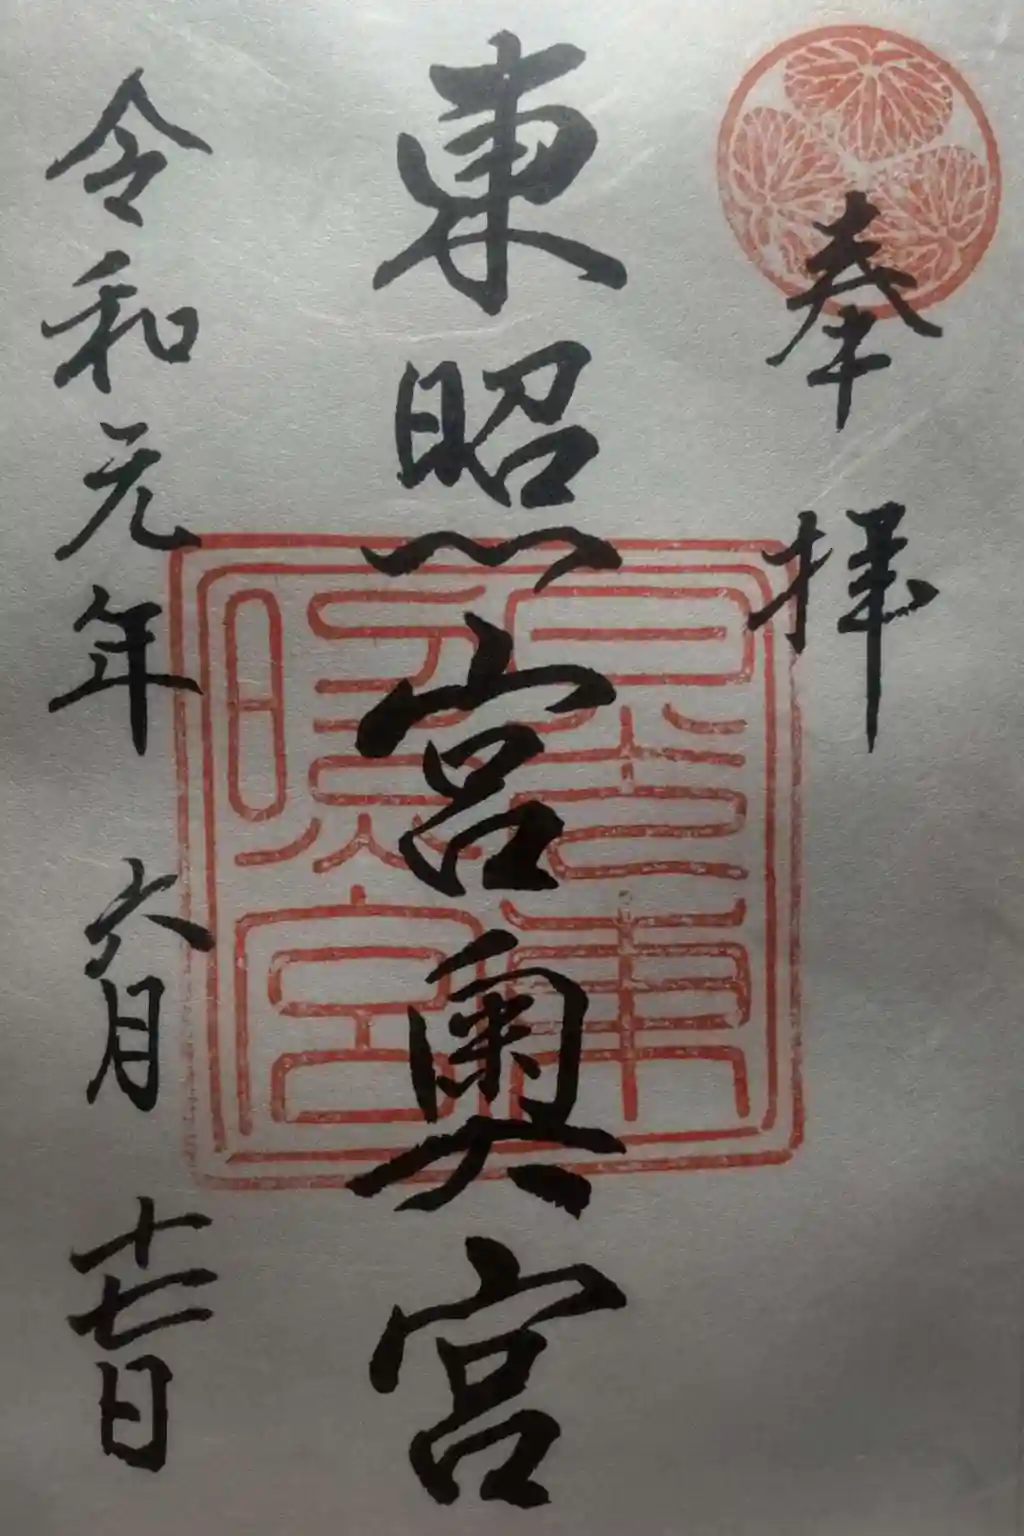 奉拝
東照宮奥宮
令和元年六月十七日
日光東
照宮